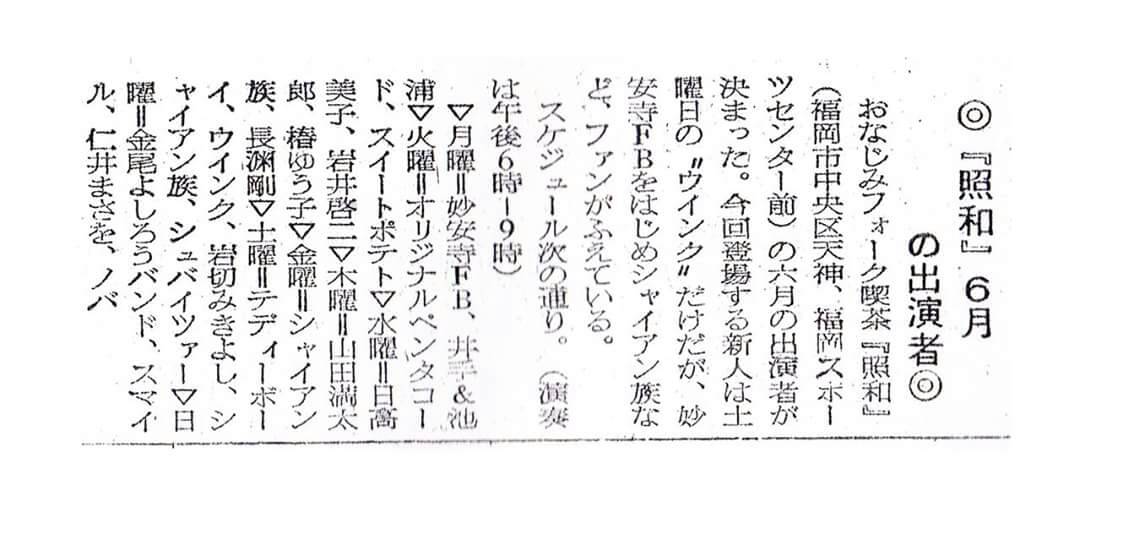 ◎『照和』6月
の出演者◎
おなじみフォーク喫茶『照和』
(福岡市中央区天神、福岡スポー
ツセンター前)の六月の出演者が
決まった。今回登場する新人は土
曜日の〝ウインク〟だけだが、妙
安寺FBをはじめシャイアン族な
ど、ファンがふえている。
スケジュール次の通り。(演奏
は午後6時ー9時)
▽月曜＝妙安寺FB、井手&池
浦▽火曜＝オリジナルペンタコー
ド、スイートポテト▽水曜＝日高
美子、岩井啓二▽木曜＝山田満太
郎、椿ゆう子▽金曜＝シャイアン
族、長渕剛▽土曜＝テディーボー
イ、ウインク、岩切みきよし、シ
ャイアン族、シュバイツァー▽日
曜＝金尾よしろうバンド、スマイ
ル、仁井まさを、ノバ